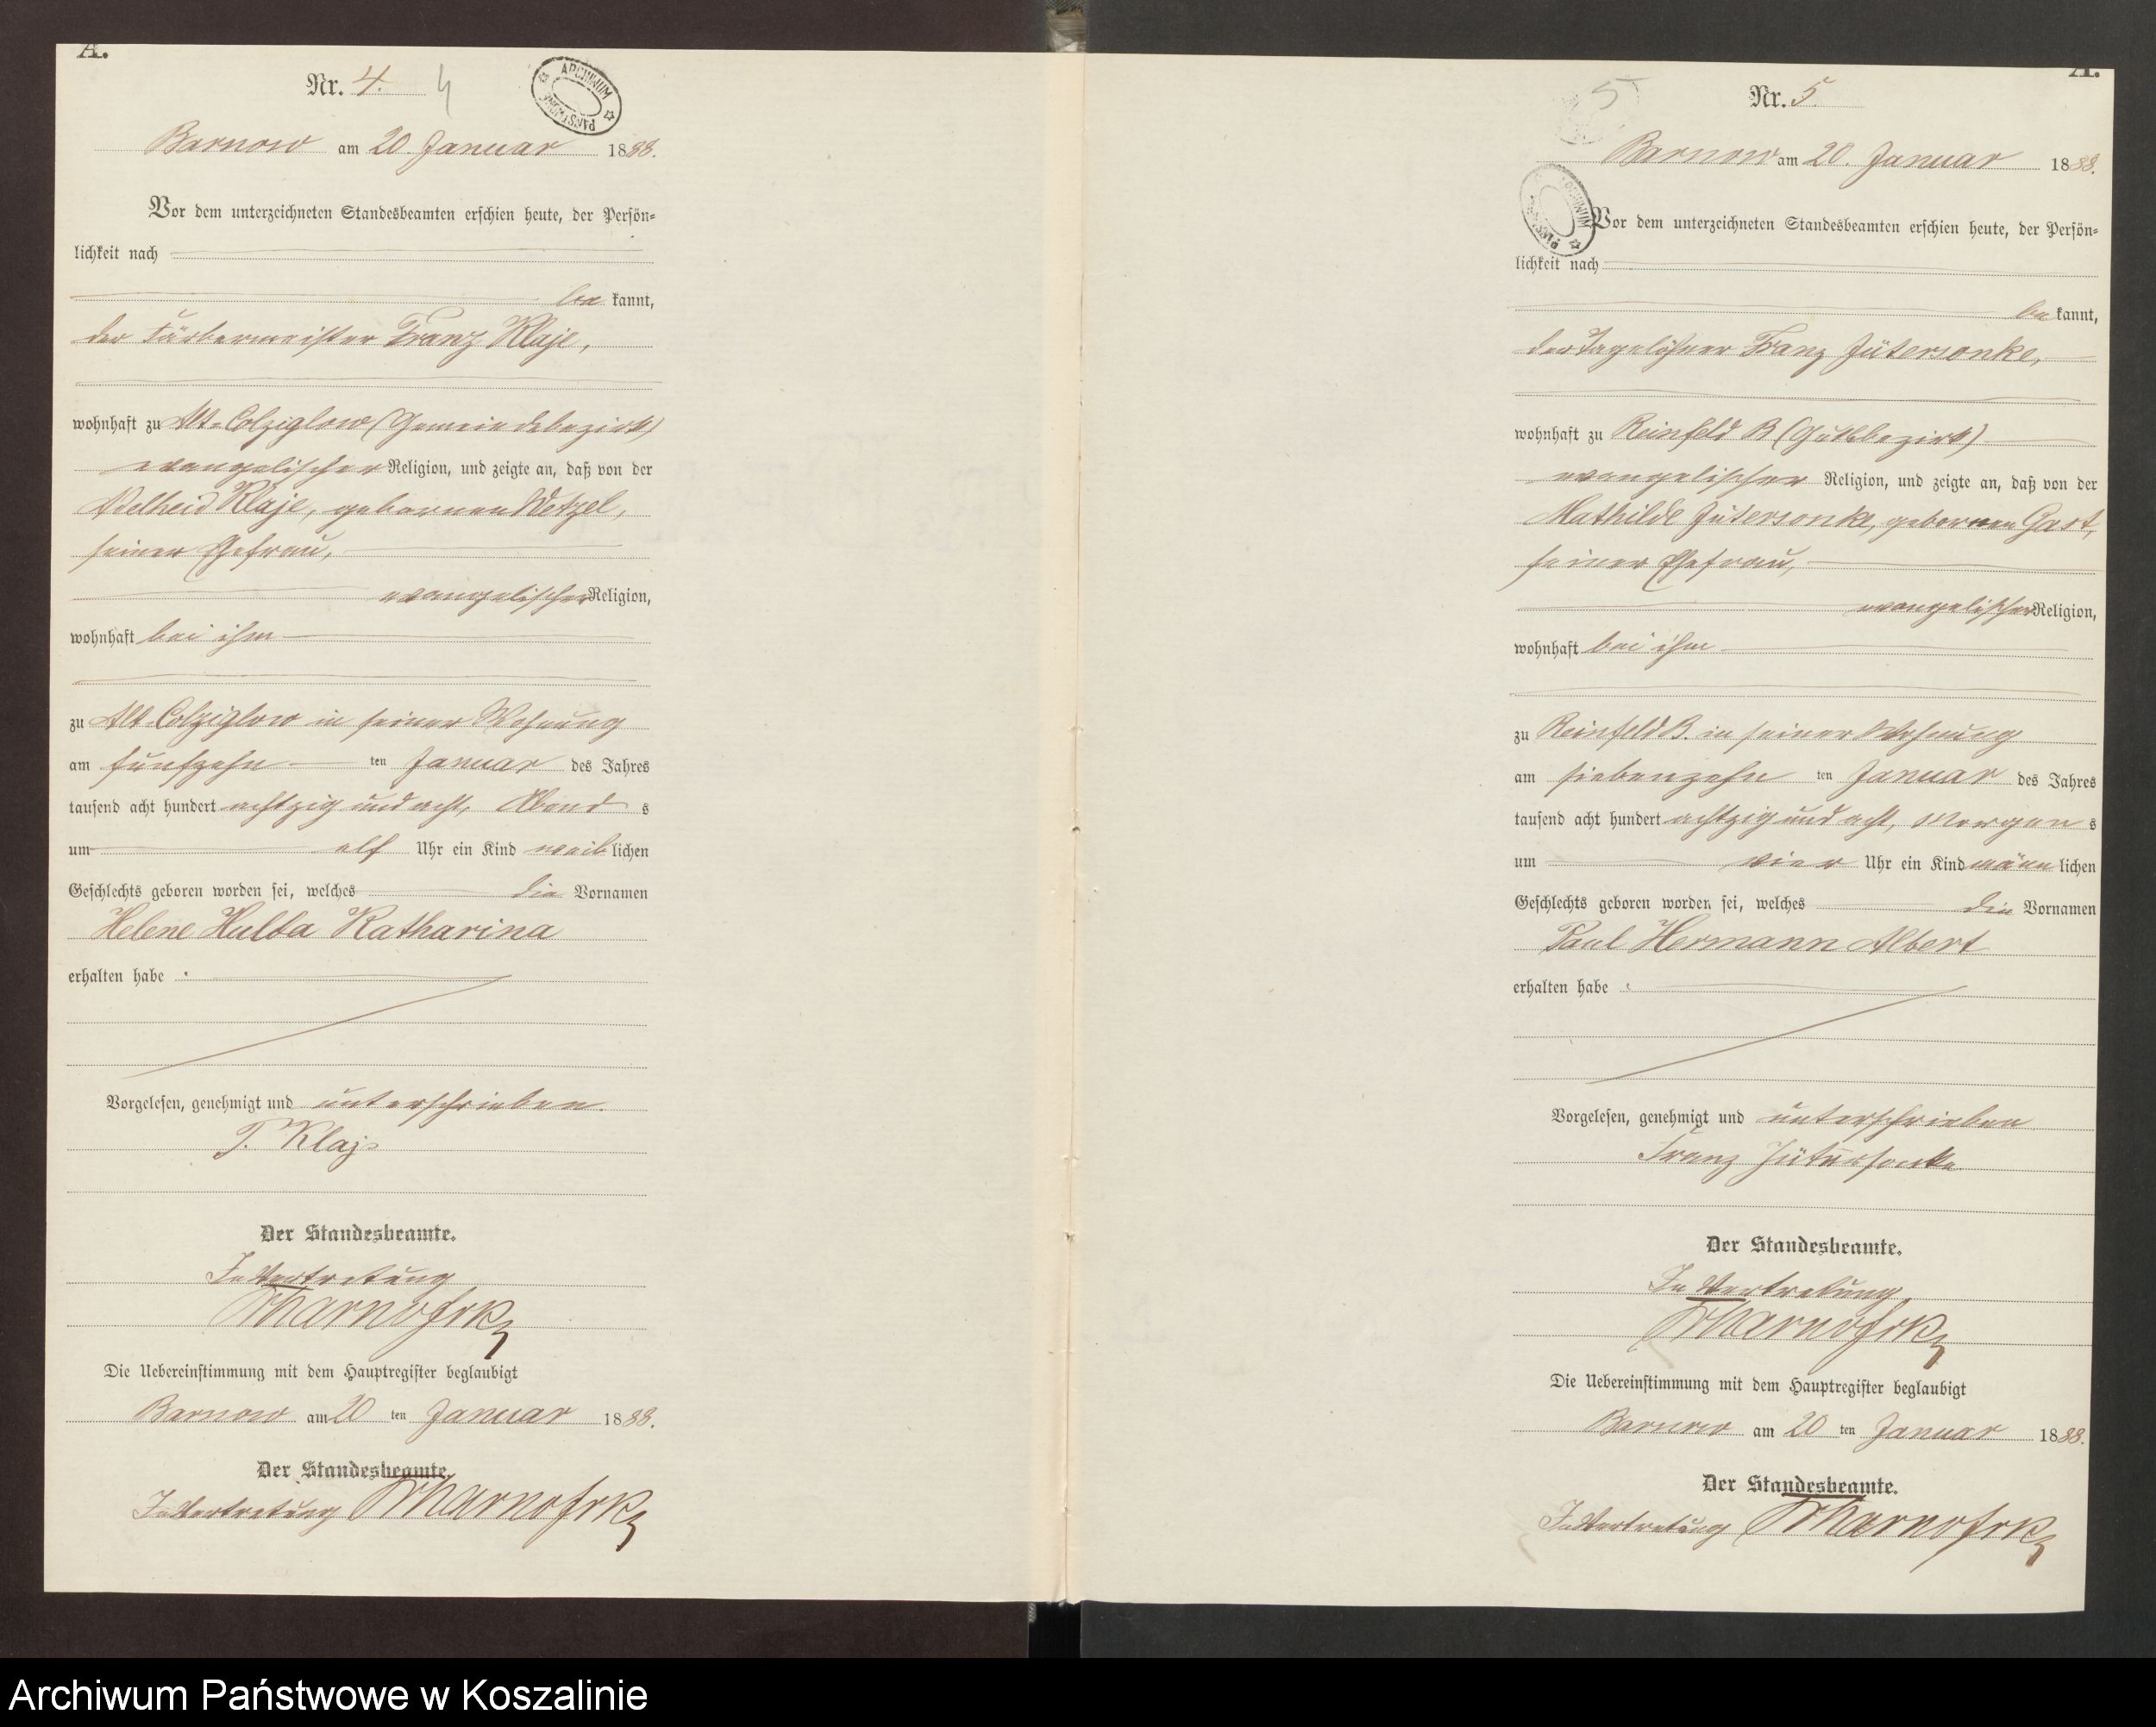 A.
Nr. 4. 4
ARCHIWUM PAŃSTWOWE
Barnow am 20. Januar 1888.
Vor dem unterzeichneten Standesbeamten erschien heute, der Persön-
lichkeit nach
be kannt,
der Färbermeister Franz Klaje,
wohnhaft zu Alt-Colziglow (Gemeindebezirk)
evangelischer Religion, und zeigte an, daß von der
Adelheid Klaje, geborenen Wetzel,
seiner Ehefrau,
evangelischer Religion,
wohnhaft bei ihm
zu Alt-Colziglow in seiner Wohnung
am fünfzehn ten Januar des Jahres
tausend acht hundert achtzig und acht, Abend s
um elf Uhr ein Kind weib lichen
Geschlechts geboren worden sei, welches die Vornamen
Helene Hulda Katharina
erhalten habe.
Vorgelesen, genehmigt und unterschrieben.
F. Klaje
Der Standesbeamte.
In Vertretung
Die Uebereinstimmung mit dem Hauptregister beglaubigt
Barnow am 20 ten Januar 1888.
Der Standesbeamte.
In Vertretung
A.
5 Nr. 5.
Barnow am 20. Januar 1888.
ARCHIWUM PAŃSTWOWE
Vor dem unterzeichneten Standesbeamten erschien heute, der Persön-
lichkeit nach
be kannt,
der Tagelöhner Franz Jütersonke,
wohnhaft zu Reinfeld B (Gutsbezirk)
evangelischer Religion, und zeigte an, daß von der
Mathilde Jütersonke, geborenen Gast,
seiner Ehefrau,
evangelischer Religion,
wohnhaft bei ihm
zu Reinfeld B. in seiner Wohnung
am siebenzehn ten Januar des Jahres
tausend acht hundert achtzig und acht, Morgen s
um vier Uhr ein Kind männ lichen
Geschlechts geboren worden sei, welches die Vornamen
Paul Hermann Albert
erhalten habe.
Vorgelesen, genehmigt und unterschrieben
Franz Jütersonke
Der Standesbeamte.
In Vertretung
Die Uebereinstimmung mit dem Hauptregister beglaubigt
Barnow am 20 ten Januar 1888.
Der Standesbeamte.
In Vertretung
Archiwum Państwowe w Koszalinie